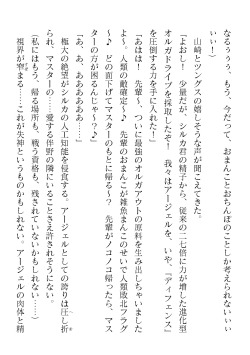 なるぅぅぅ、もう、今だって、おまんことおちんぽのことしか考えられないぃ
ぃぃ！）
山崎とツングスの嬉しそうな声が聞こえてきた。
「よおし！　少量だが、シルカ君の精子から、従来の二七倍に力が増した進化型
オルガドライブを採取したぞ！　我々はアージェルを、いや、『ディフェンス』
を圧倒する力を手に入れた！」
「あはは！　先輩～、ついに最強のオルガアウトの原料を生み出しちゃいました
よ～。人類の敵確定　先輩のおまんこが雑魚まんこのせいで人類敗北フラグ
～♪　どの面下げてマスターのもとに帰るの？　先輩がノコノコ帰ったら、マス
ターの方が困るんじゃ～？」
「あ、あ、あああああ……」
極大の絶望がシルカの人工知能を侵食する。アージェルとしての誇りは圧し折
られ、マスターの……愛する伴野の隣にいることさえ許されそうにない。
（私にはもう、帰る場所も、戦う資格も、残されていないかもしれない……）
視界が窄まる……これが失神というものかもしれない。アージェルの肉体と精